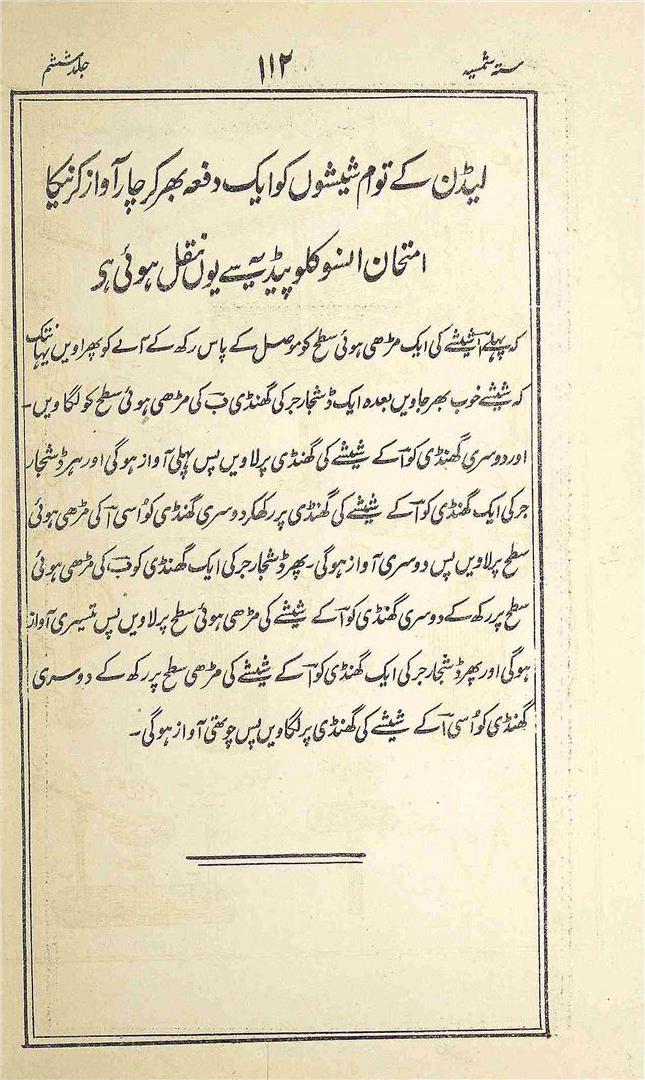 ستہ شمسیہ ۱۱۲ جلد ششم
لیڈن کے توام شیشوں کو ایک دفعہ بھر کر چار آواز کرنیکا
امتحان انسوکلوپیڈیہ سے یوں نقل ہوئی ہی
کہ پہلے آ شیشے کی ایک مڑھی ہوئی سطح کو موصل کے پاس رکھ کے آلے کو پھراویں یہانتک
کہ شیشے خوب بھر جاویں بعدہ ایک ڈسٔچارجر کی گھنڈی ب کی مڑھی ہوئی سطح کو لگاویں۔
اور دوسری گھنڈی کو آ کے شیشے کی گھنڈی پر لاویں پس پہلی آواز ہوگی اور پھر ڈشچار
جر کی ایک گھنڈی کو آ کے شیشے کی گھنڈی پر رکھکر دوسری گھنڈی کو اُسی آ کی مڑھی ہوئی
سطح پر لاویں پس دوسری آواز ہوگی۔ پھر ڈشچارجر کی ایک گھنڈی کو ب کی مڑھی ہوئی
سطح پر رکھ کے دوسری گھنڈی کو آ کے شیشے کی مڑھی ہوئی سطح پر لاویں پس تیسری آواز
ہوگی اور پھر ڈشچارجر کی ایک گھنڈی کو آ کے شیشے کی مڑھی سطح پر رکھ کے دوسری
گھنڈی کو اُسی آ کے شیشے کی گھنڈی پر لگاویں پس چوتھی آواز ہوگی۔